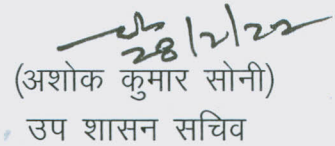 28/2/22
(अशोक कुमार सोनी)
उप शासन सचिव